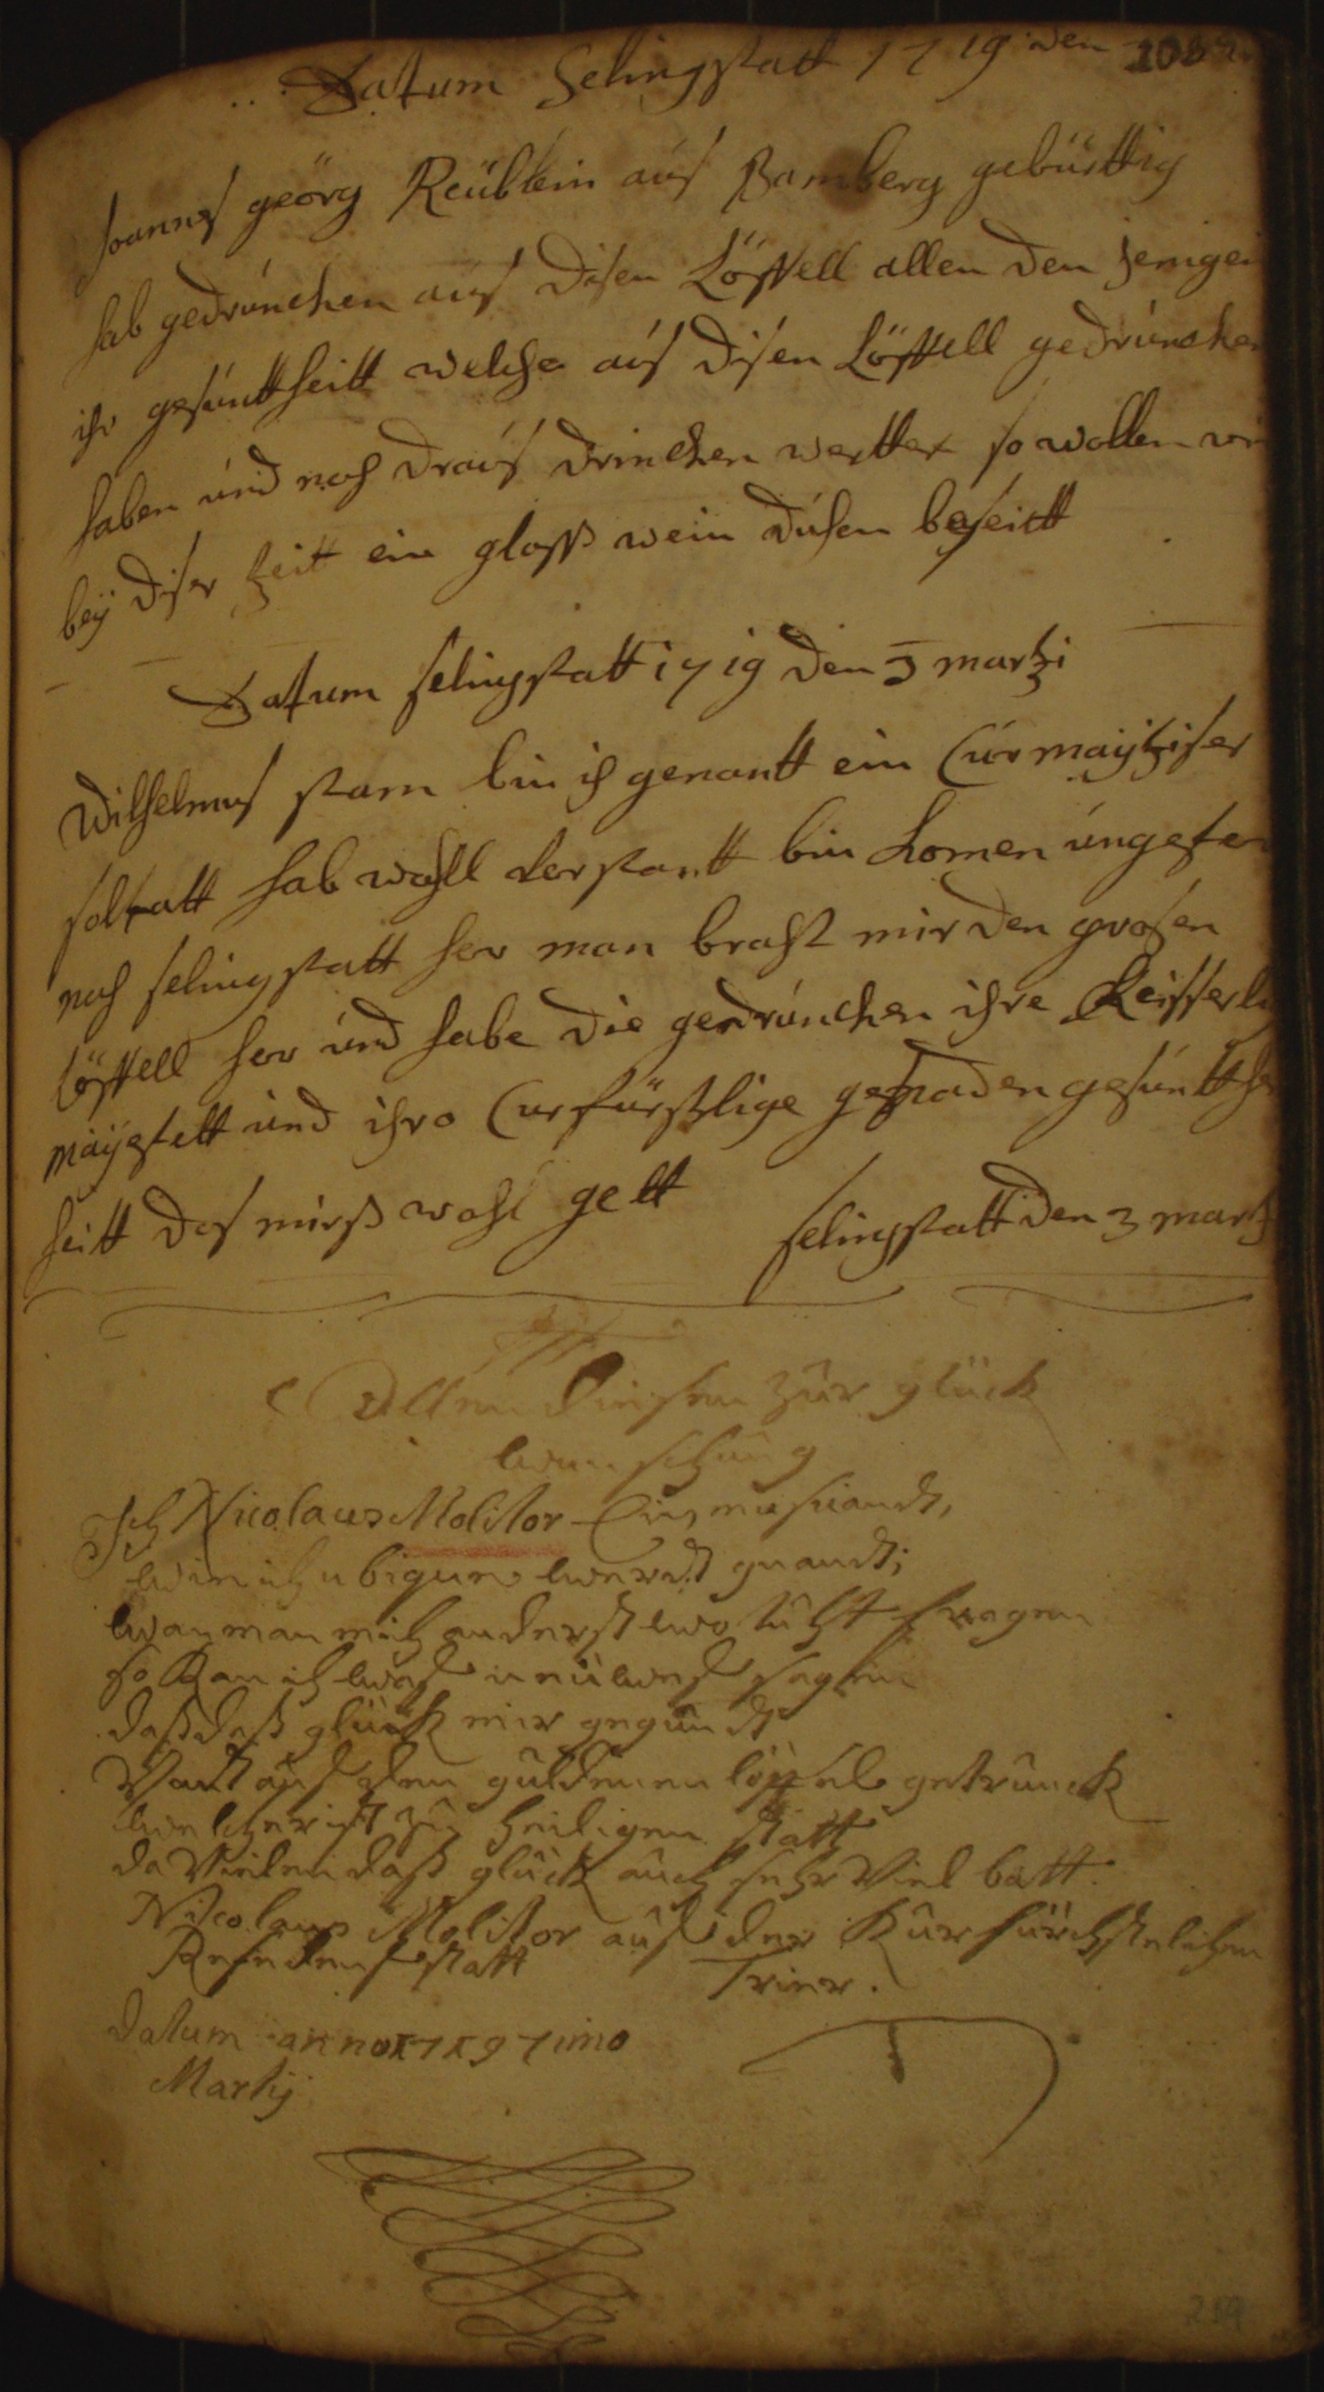 Datum Selingstatt 1719 den
Joannes georg Reüblein aus Bamberg gebürttig
hab gedrunchen aus disen Löffell allen den jenigen
ihr gesuntheitt welche aus disen Löffell gedrunchen
haben und noch draus drinchen wertten so wollen wir
beÿ diser zeitt ein glass wein
Datum selingstatt 1719 den 3 martzi
Wilhelmus stam bin ich genantt ein Curmaÿtziser
soltatt hab wohll verstantt bin komen ungefer
nach selingstatt her man bracht mir den grosen
Löffell her und habe die gedrunchen ihre Keisserli
maÿestett und ihro Curfürstlige genaden gesuntthe
heitt das mirss wohl gett selingstatt den 3 martz
Allen diesem zur glück
wunschung
Ich Nicolaus Molitor
werdt genandt;
wan man mich anderst wo tuht fragen
so kan ich was neüwes sagen
dass dass glück mir gegündt
aus dem guldenen löffel getrunck
welcher ist zu heiligen statt
da vielen dass glück auch sehr viel batt.
Nicolaus Molitor aus der Kurfürchstelichen
Resedens statt Trier.
Datum anno 1719 7imo
Martij